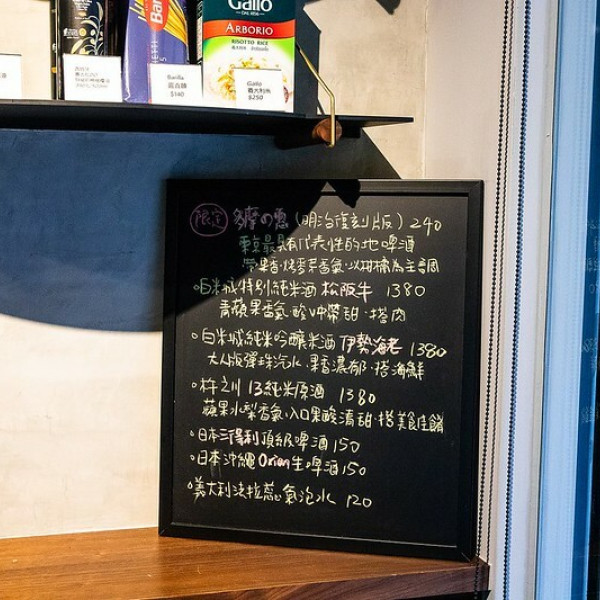 Gallo
ARBORIO
RISOTTO RICE
Barilla
$140
Gallo
義大利米
$250
限定 多摩の恵 (明治復刻版) 240
東京最具有代表性的地啤酒
帶果香·烤麥芽香氣·以柑橘為主調
白米城特別純米酒 松阪牛 1380
青蘋果香氣·酸中帶甜·搭肉
白米城純米吟釀米酒 伊勢海老 1380
大人版彈珠汽水·果香濃郁·搭海鮮
杵之川 13純米原酒 1380
蘋果水梨香氣·入口果酸清甜·搭美食佳餚
日本三得利頂級啤酒 150
日本沖繩Orion生啤酒 150
義大利法拉蕊氣泡水 120